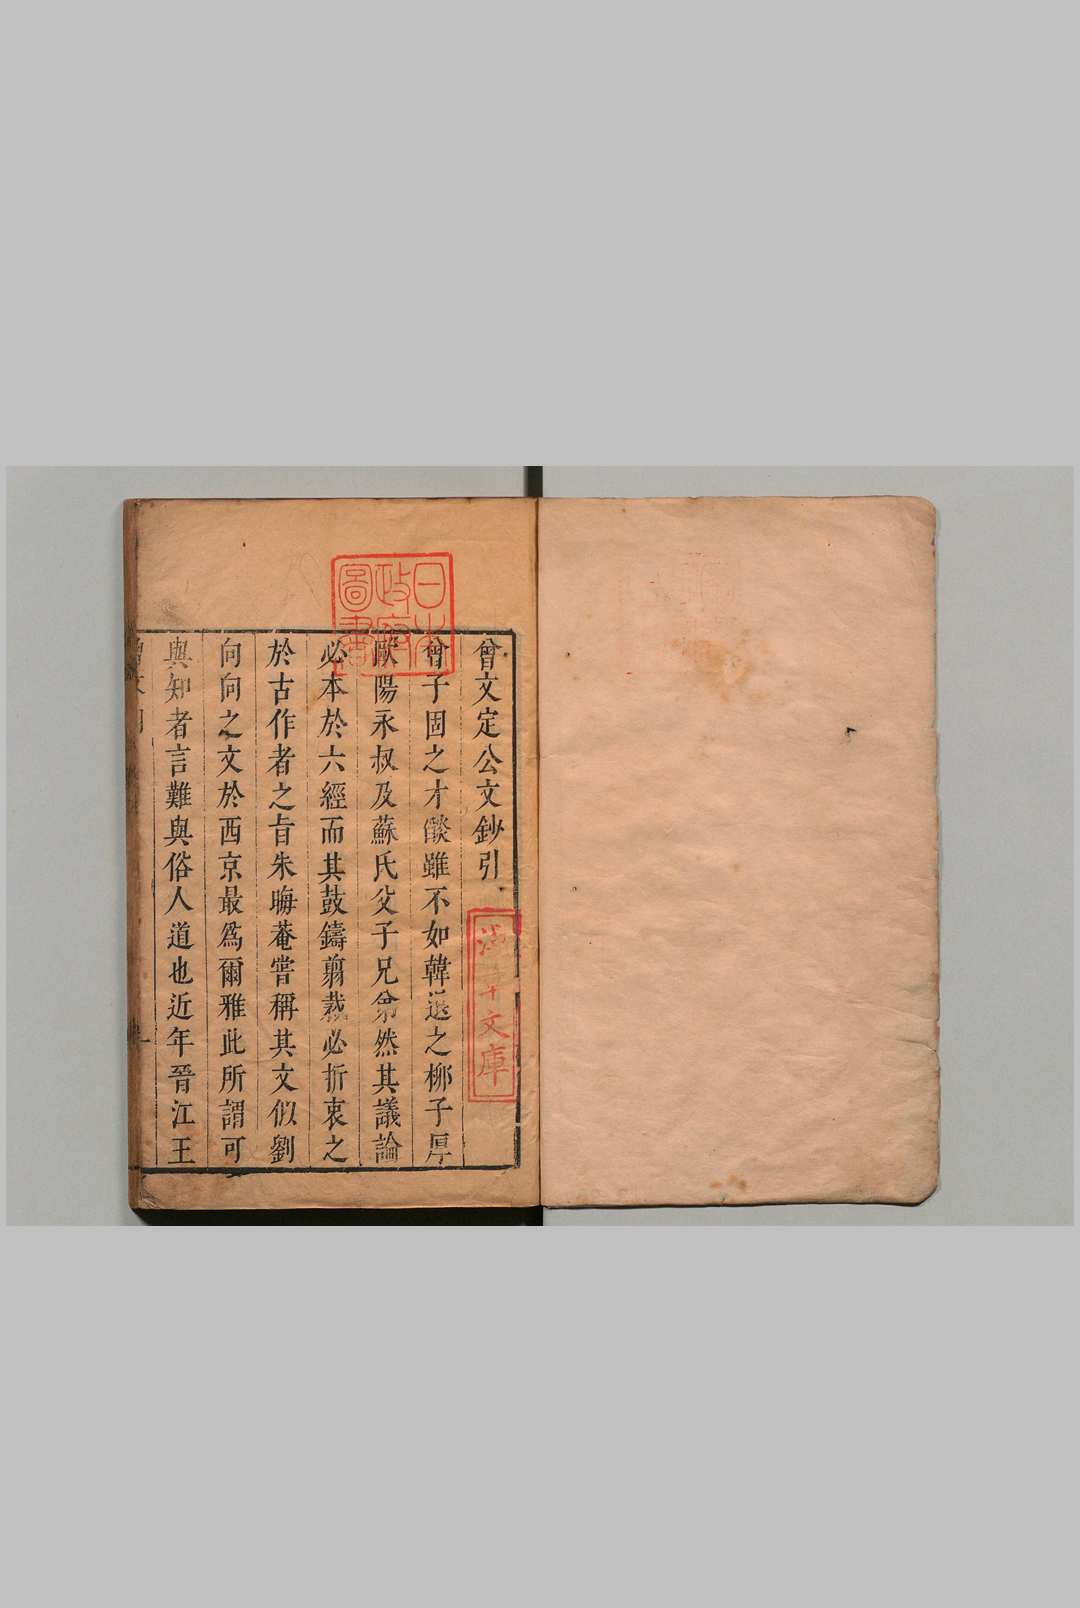 曾文定公文鈔引
曾子固之才燄雖不如韓退之柳子厚
歐陽永叔及蘇氏父子兄弟然其議論
必本於六經而其鼓鑄剪裁必折衷之
於古作者之旨朱晦菴嘗稱其文似劉
向向之文於西京最爲爾雅此所謂可
與知者言難與俗人道也近年晉江王
日本
政府
圖書
文庫